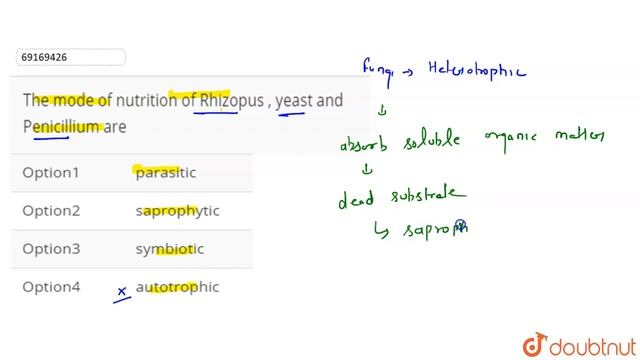 69169426
The mode of nutrition of Rhizopus , yeast and
Penicillium are
Option1 parasitic
Option2 saprophytic
Option3 symbiotic
Option4 x autotrophic
Fungi → Heterotrophic
↓
absorb soluble organic matters
↓
dead substrate
↳ saproph
doubtnut